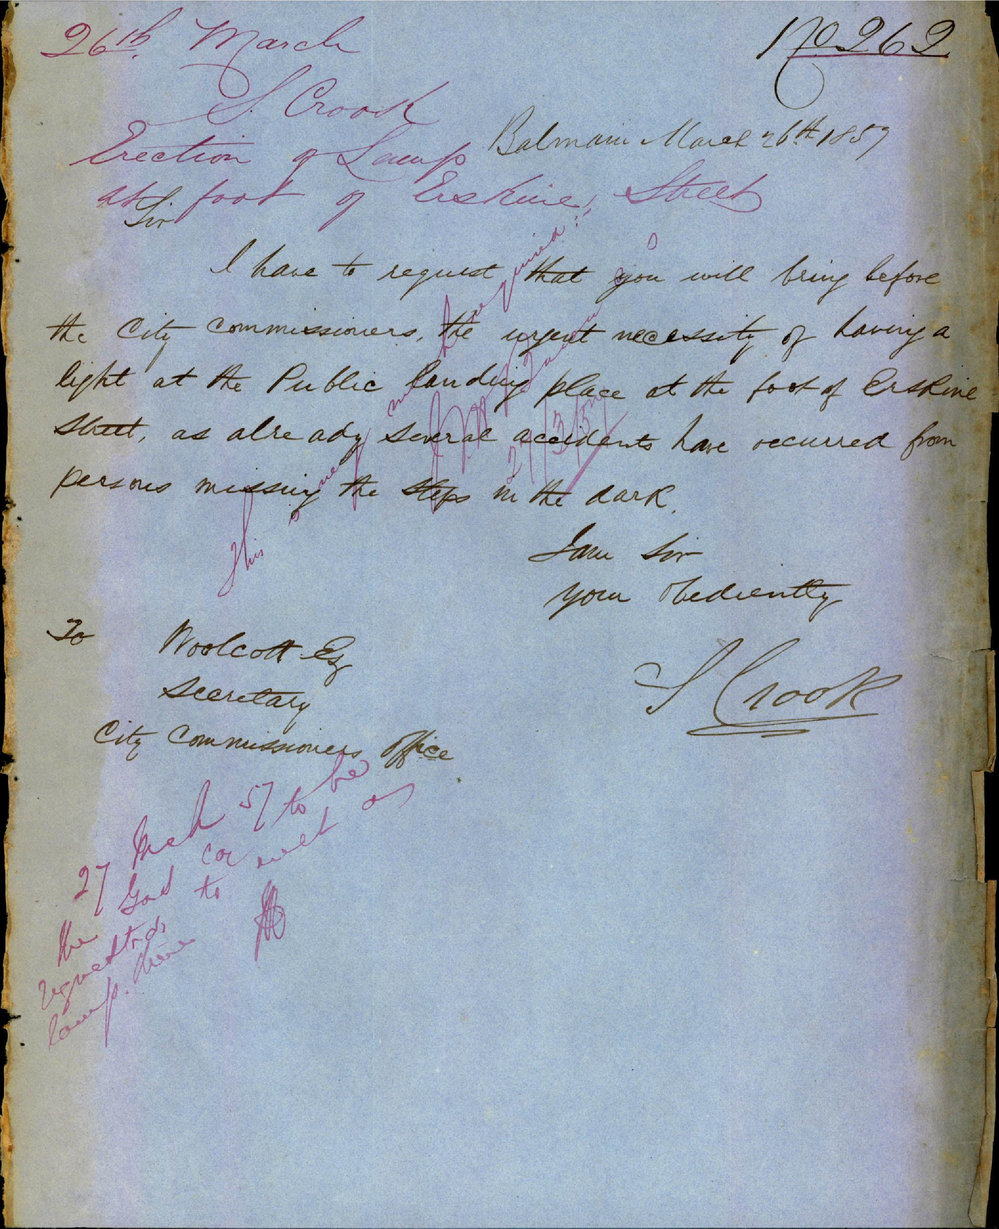 26th. March
No 262
S. Crook
Erection of Lamp
at foot of Erskine Street
Balmain March 26th 1857
Sir
I have to request that you will bring before
the City Commissioners, the urgent necessity of having a
light at the Public landing place at the foot of Erskine
Street, as already several accidents have occurred from
persons missing the steps in the dark.
I am Sir
your obediently
S Crook
To Woolcott Esq
Secretary
City Commissioners Office
This is much required
27/3/57
27 Mch 57 to be
the Gas Co
requested to erect a
lamp there